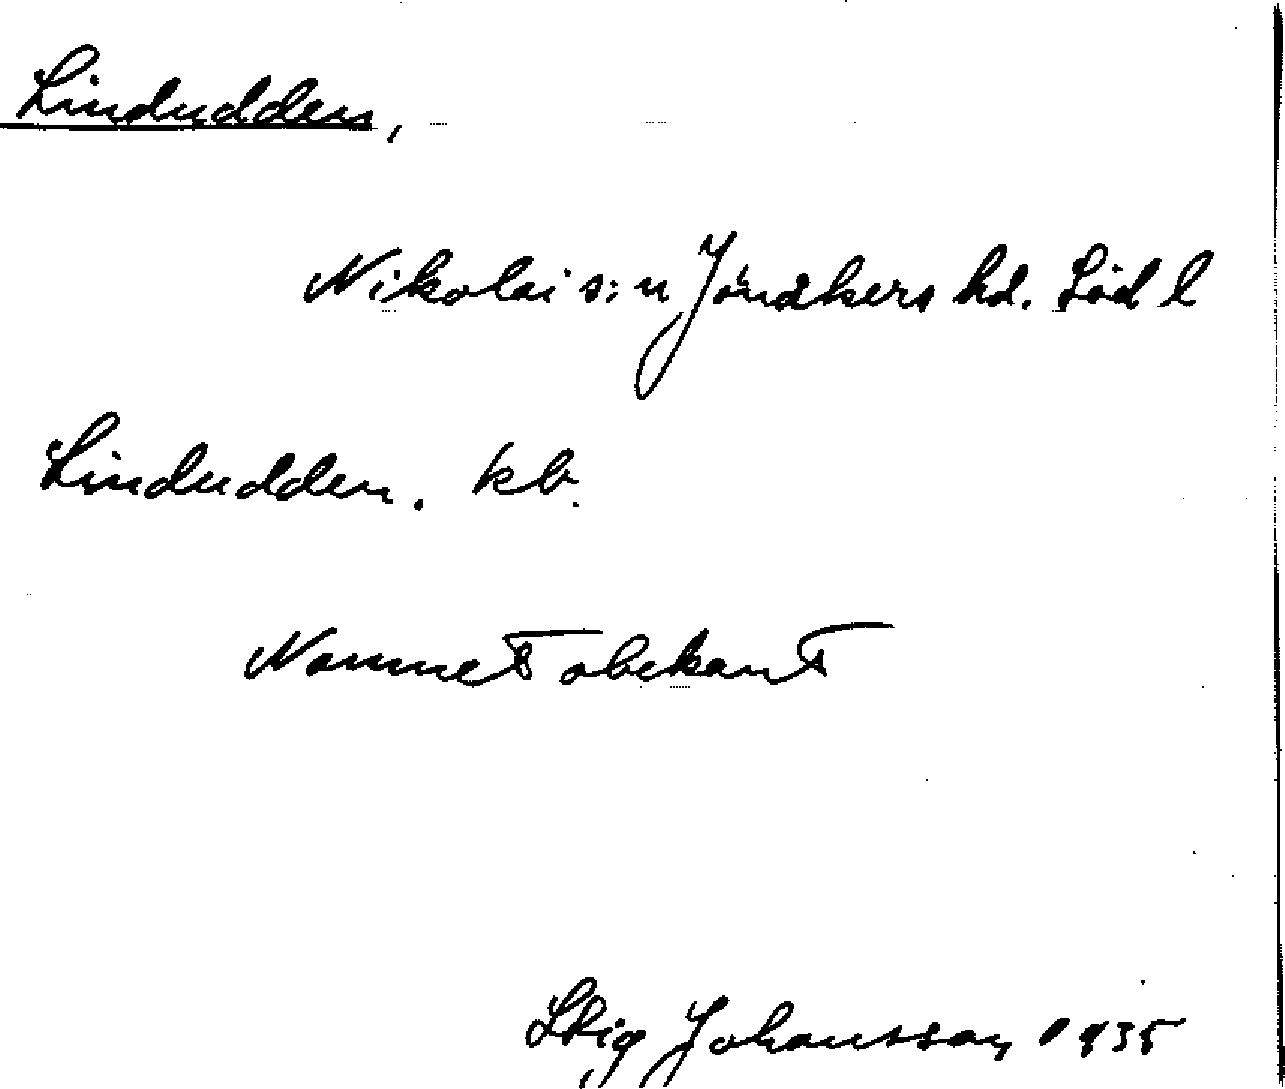 Lindudden,
Nikolai s:n Jönåkers hd. Söd l
Lindudden. kb.
Namnet obekant
Stig Johansson 1935